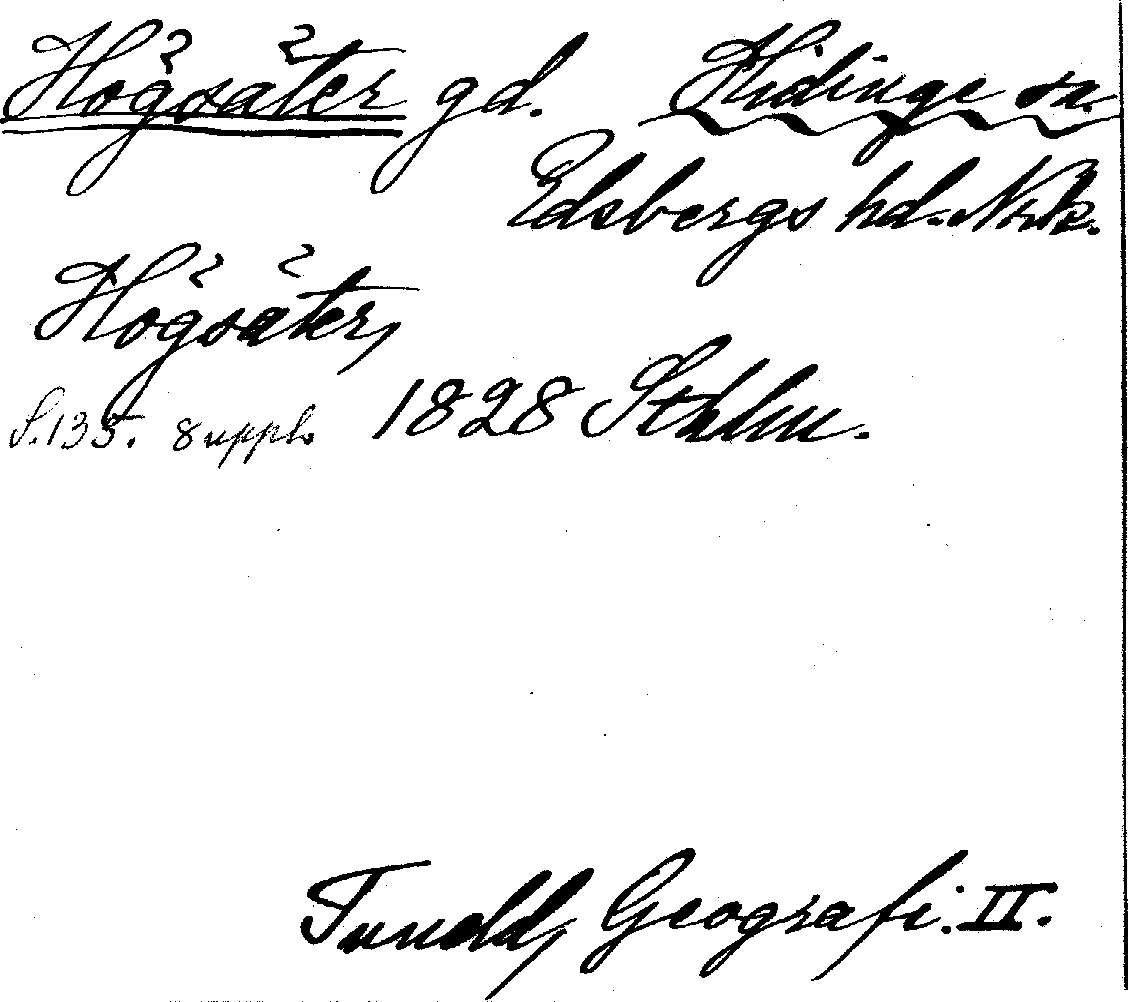 Högsäter gd. Hidinge sn.
Edsbergs hd. Nrk.
Högsäter,
S. 135. suppl. 1828 Sthlm.
Tuneld, Geografi. II.